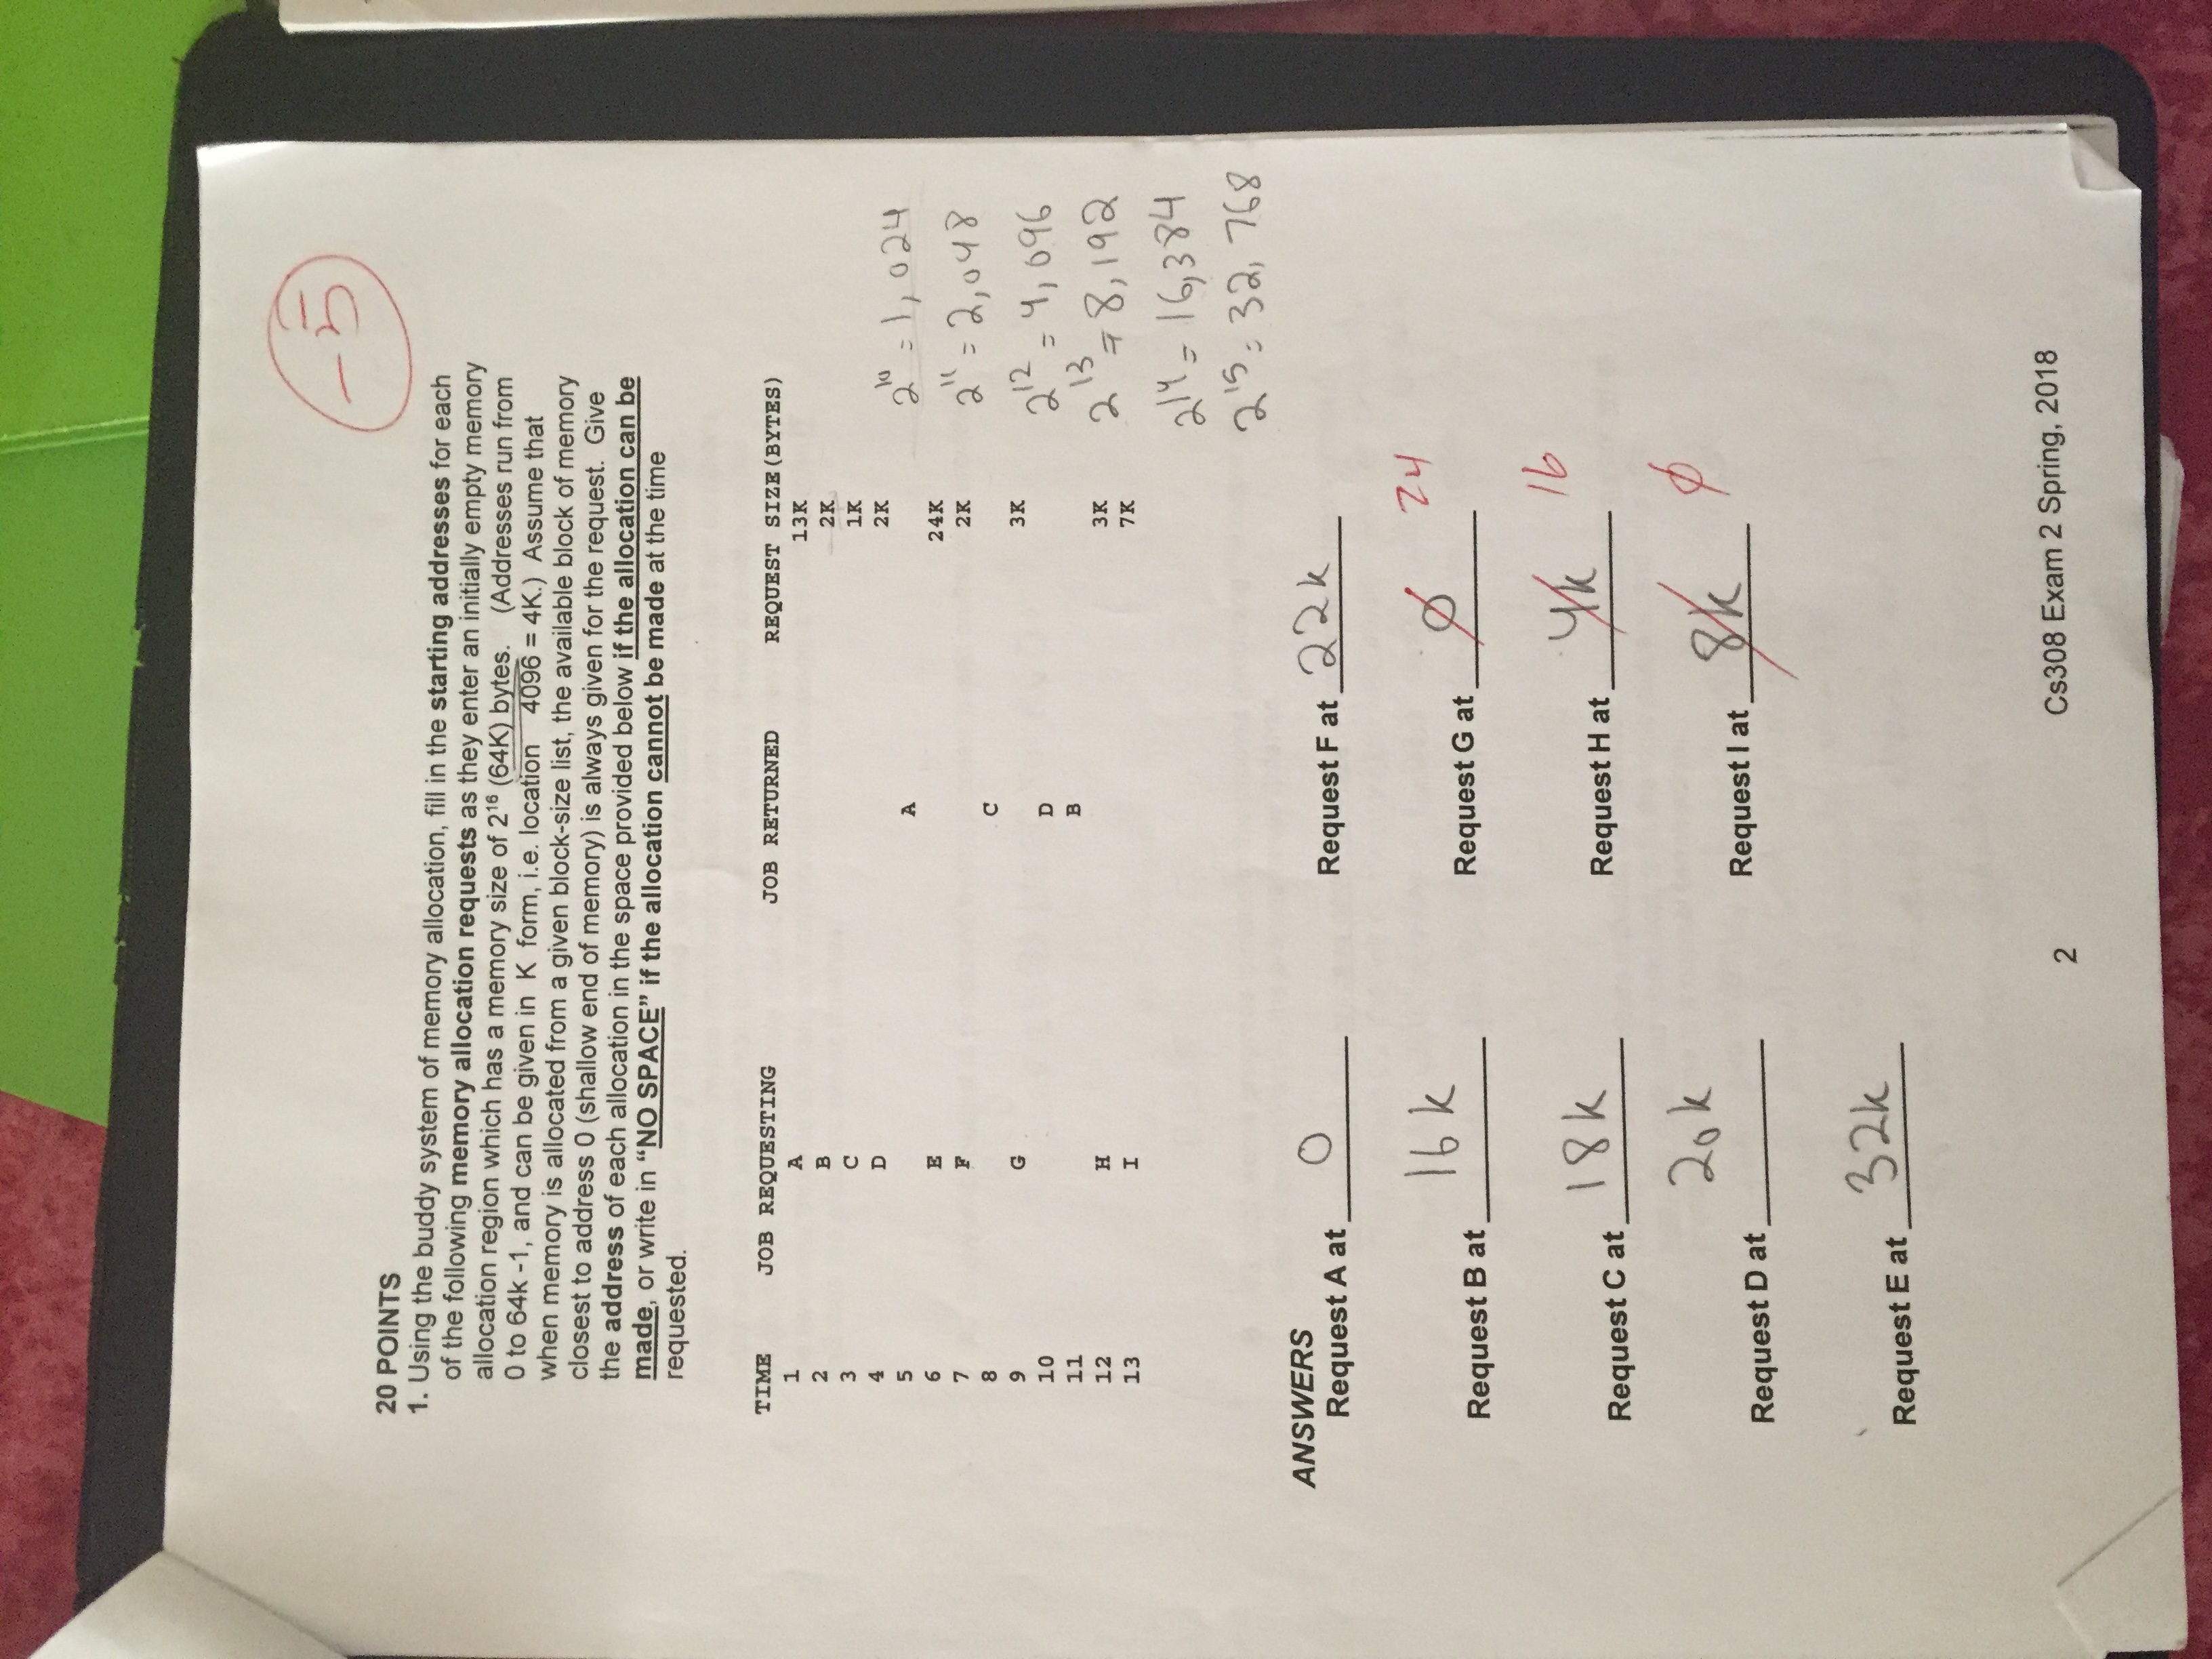 -5
20 POINTS
1. Using the buddy system of memory allocation, fill in the starting addresses for each
of the following memory allocation requests as they enter an initially empty memory
allocation region which has a memory size of 2¹⁶ (64K) bytes. (Addresses run from
0 to 64k -1, and can be given in K form, i.e. location 4096 = 4K.) Assume that
when memory is allocated from a given block-size list, the available block of memory
closest to address 0 (shallow end of memory) is always given for the request. Give
the address of each allocation in the space provided below if the allocation can be
made, or write in “NO SPACE” if the allocation cannot be made at the time
requested.
TIME JOB REQUESTING JOB RETURNED REQUEST SIZE(BYTES)
1 A 13K
2 B 2K
3 C 1K
4 D 2K
5 A
6 E 24K
7 F 2K
8 C
9 G 3K
10 D
11 B
12 H 3K
13 I 7K
2¹⁰ = 1,024
2¹¹ = 2,048
2¹² = 4,096
2¹³ = 8,192
2¹⁴ = 16,384
2¹⁵ = 32,768
ANSWERS
Request A at 0 Request F at 22k
Request B at 16k Request G at 0 24
Request C at 18k Request H at 4k 16
Request D at 20k Request I at 8k 0
Request E at 32k
2 Cs308 Exam 2 Spring, 2018